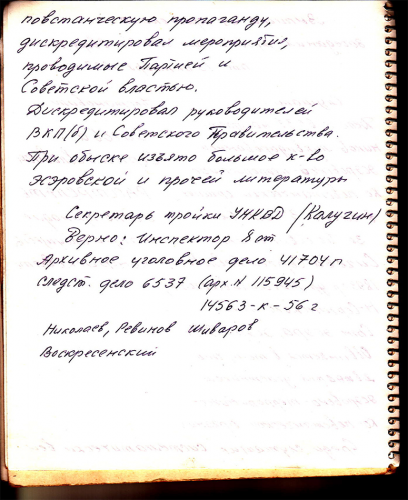 повстанческую пропаганду,
дискредитировал мероприятия,
проводимые Партией и
Советской властью.
Дискредитировал руководителей
ВКП(б) и Советского Правительства.
При обыске изъято большое к-во
эсэровской и прочей литературы
Секретарь тройки УНКВД /Калугин/
Верно: Инспектор 8 от
Архивное уголовное дело 41704 п
следст. дело 6537 (арх. N 115945)
14563-к-56 г
Николаев, Ревинов Шиваров
Воскресенский